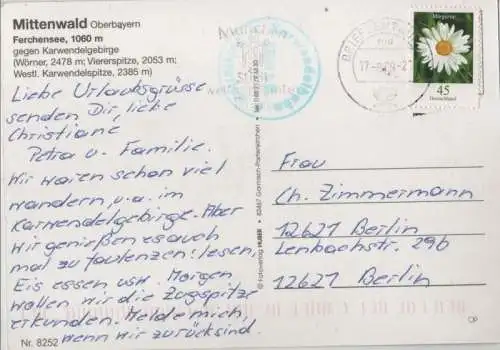 Mittenwald Oberbayern
Ferchensee, 1060 m
gegen Karwendelgebirge
(Wörner, 2478 m; Viererspitze, 2053 m;
Westl. Karwendelspitze, 2385 m)
Liebe Urlaubsgrüsse
senden Dir, liebe
Christiane
Petra u. Familie.
Wir waren schon viel
wandern, u.a. im
Karwendelgebirge. Aber
wir genießen es auch
mal zu faulenzen: lesen,
Eis essen usw. Morgen
wollen wir die Zugspitze
erkunden. Melde mich,
wenn wir zurück sind.
Nr. 8252
© Fotoverlag HUBER • 82467 Garmisch-Partenkirchen
Margerite
45
Deutschland
Frau
Ch. Zimmermann
12621 Berlin
Lenbachstr. 29b
12621 Berlin